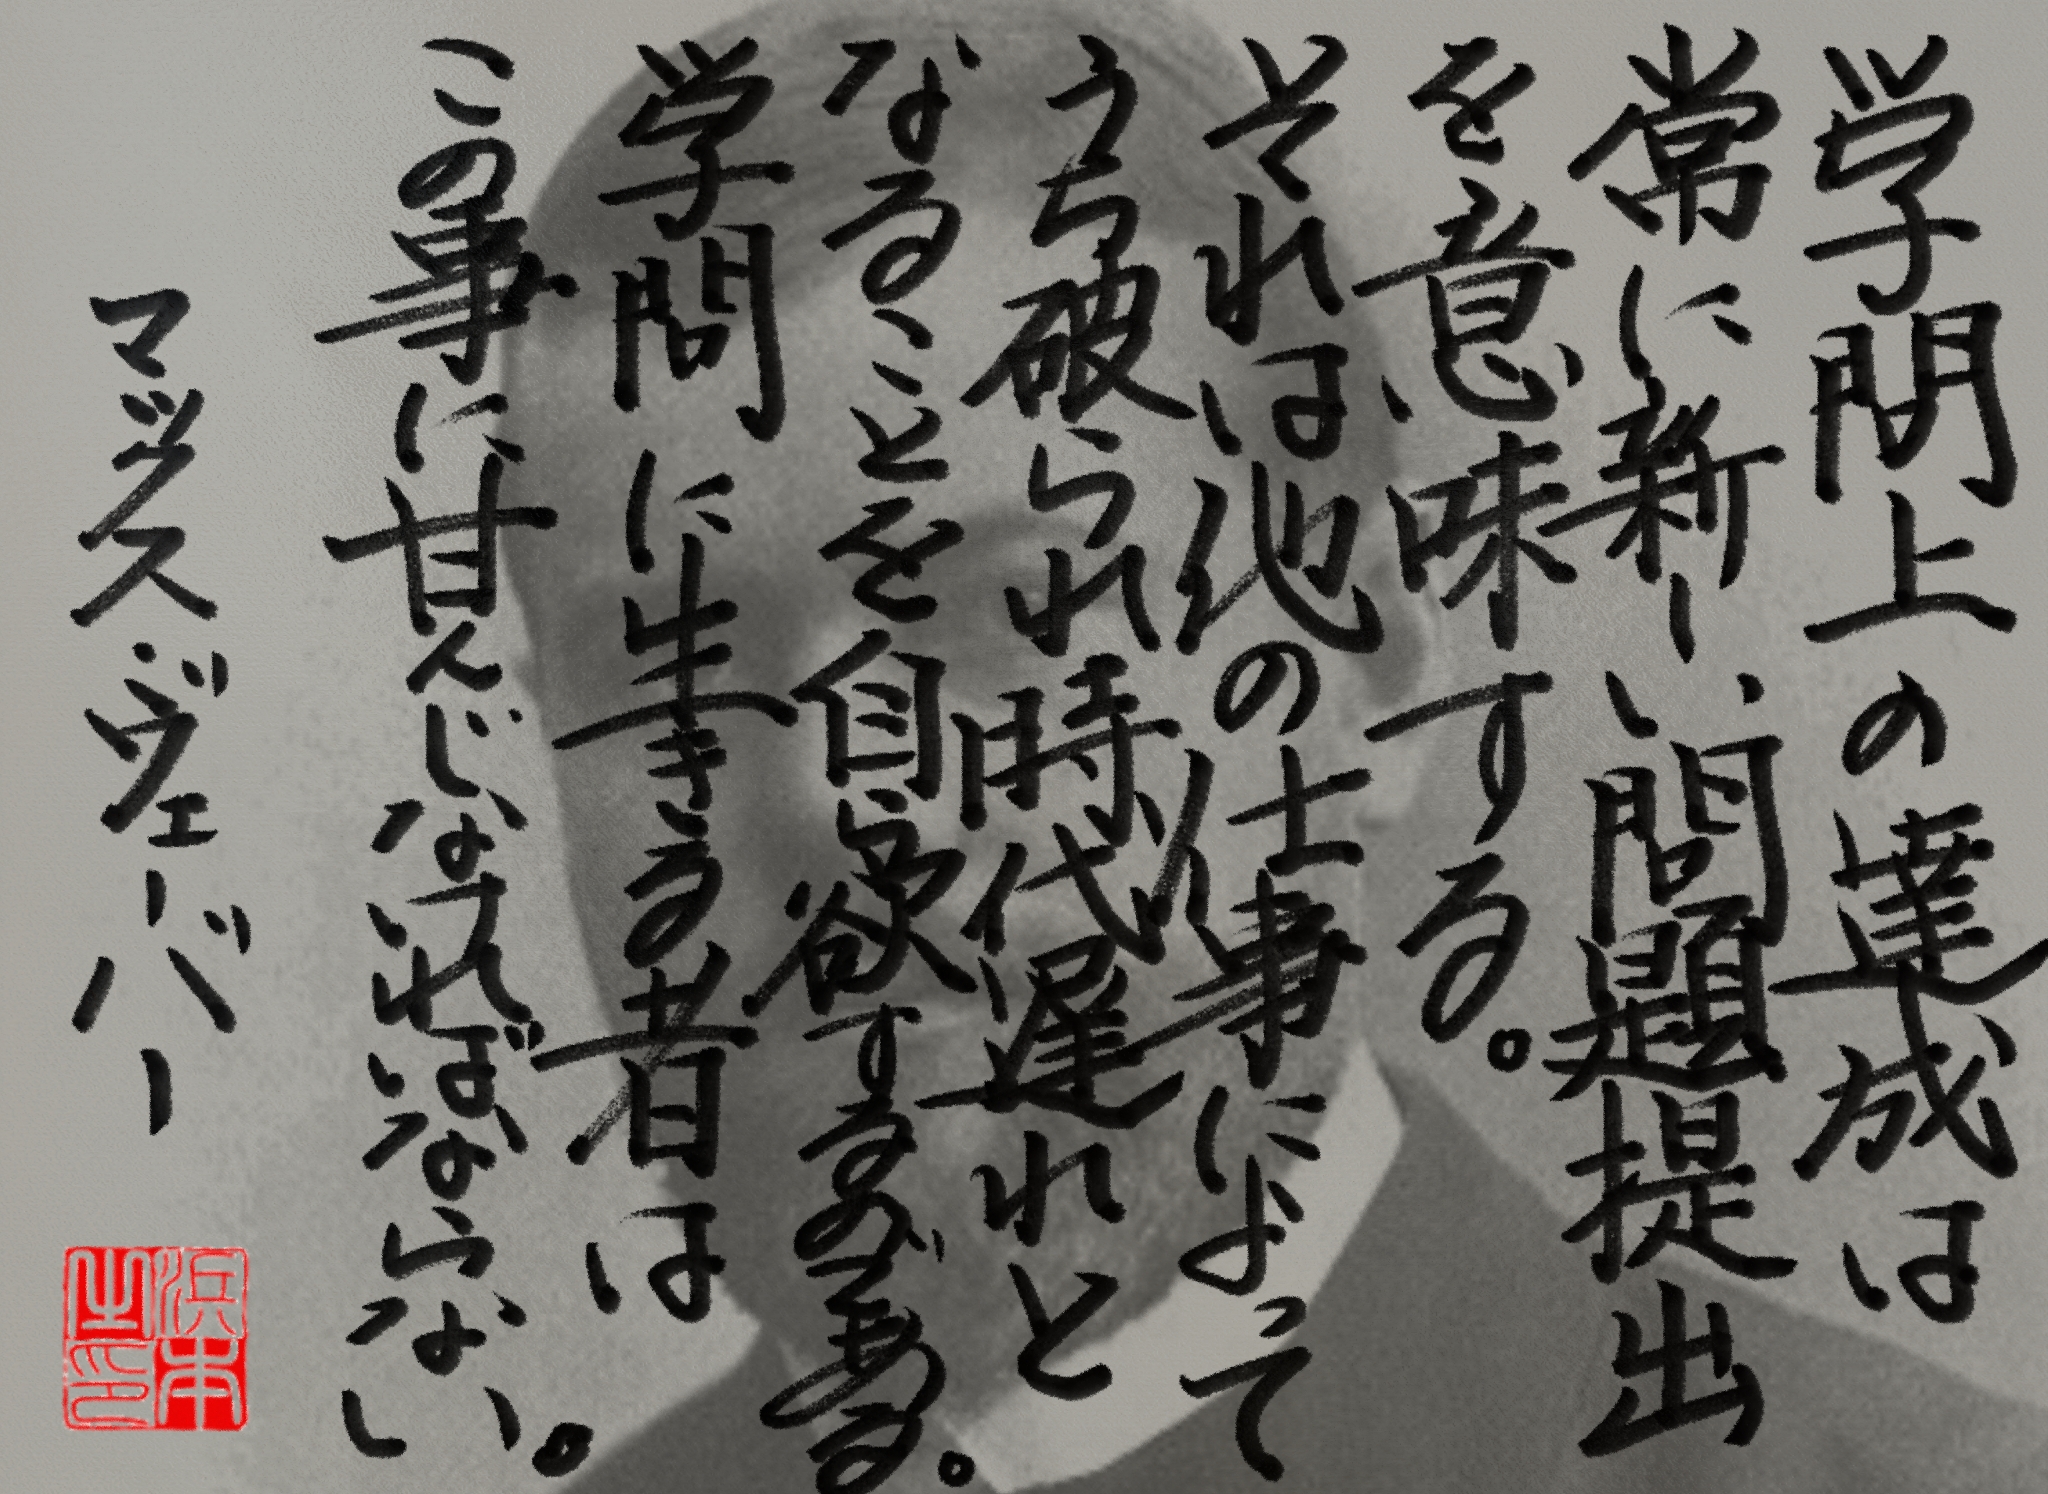 学問上の達成は
常に新しい問題提出
を意味する。
それは他の仕事によって
うち破られ時代遅れと
なることを自ら欲するのである。
学問に生きる者は
この事に甘んじなければならない。
マックス・ヴェーバー
浜本之印